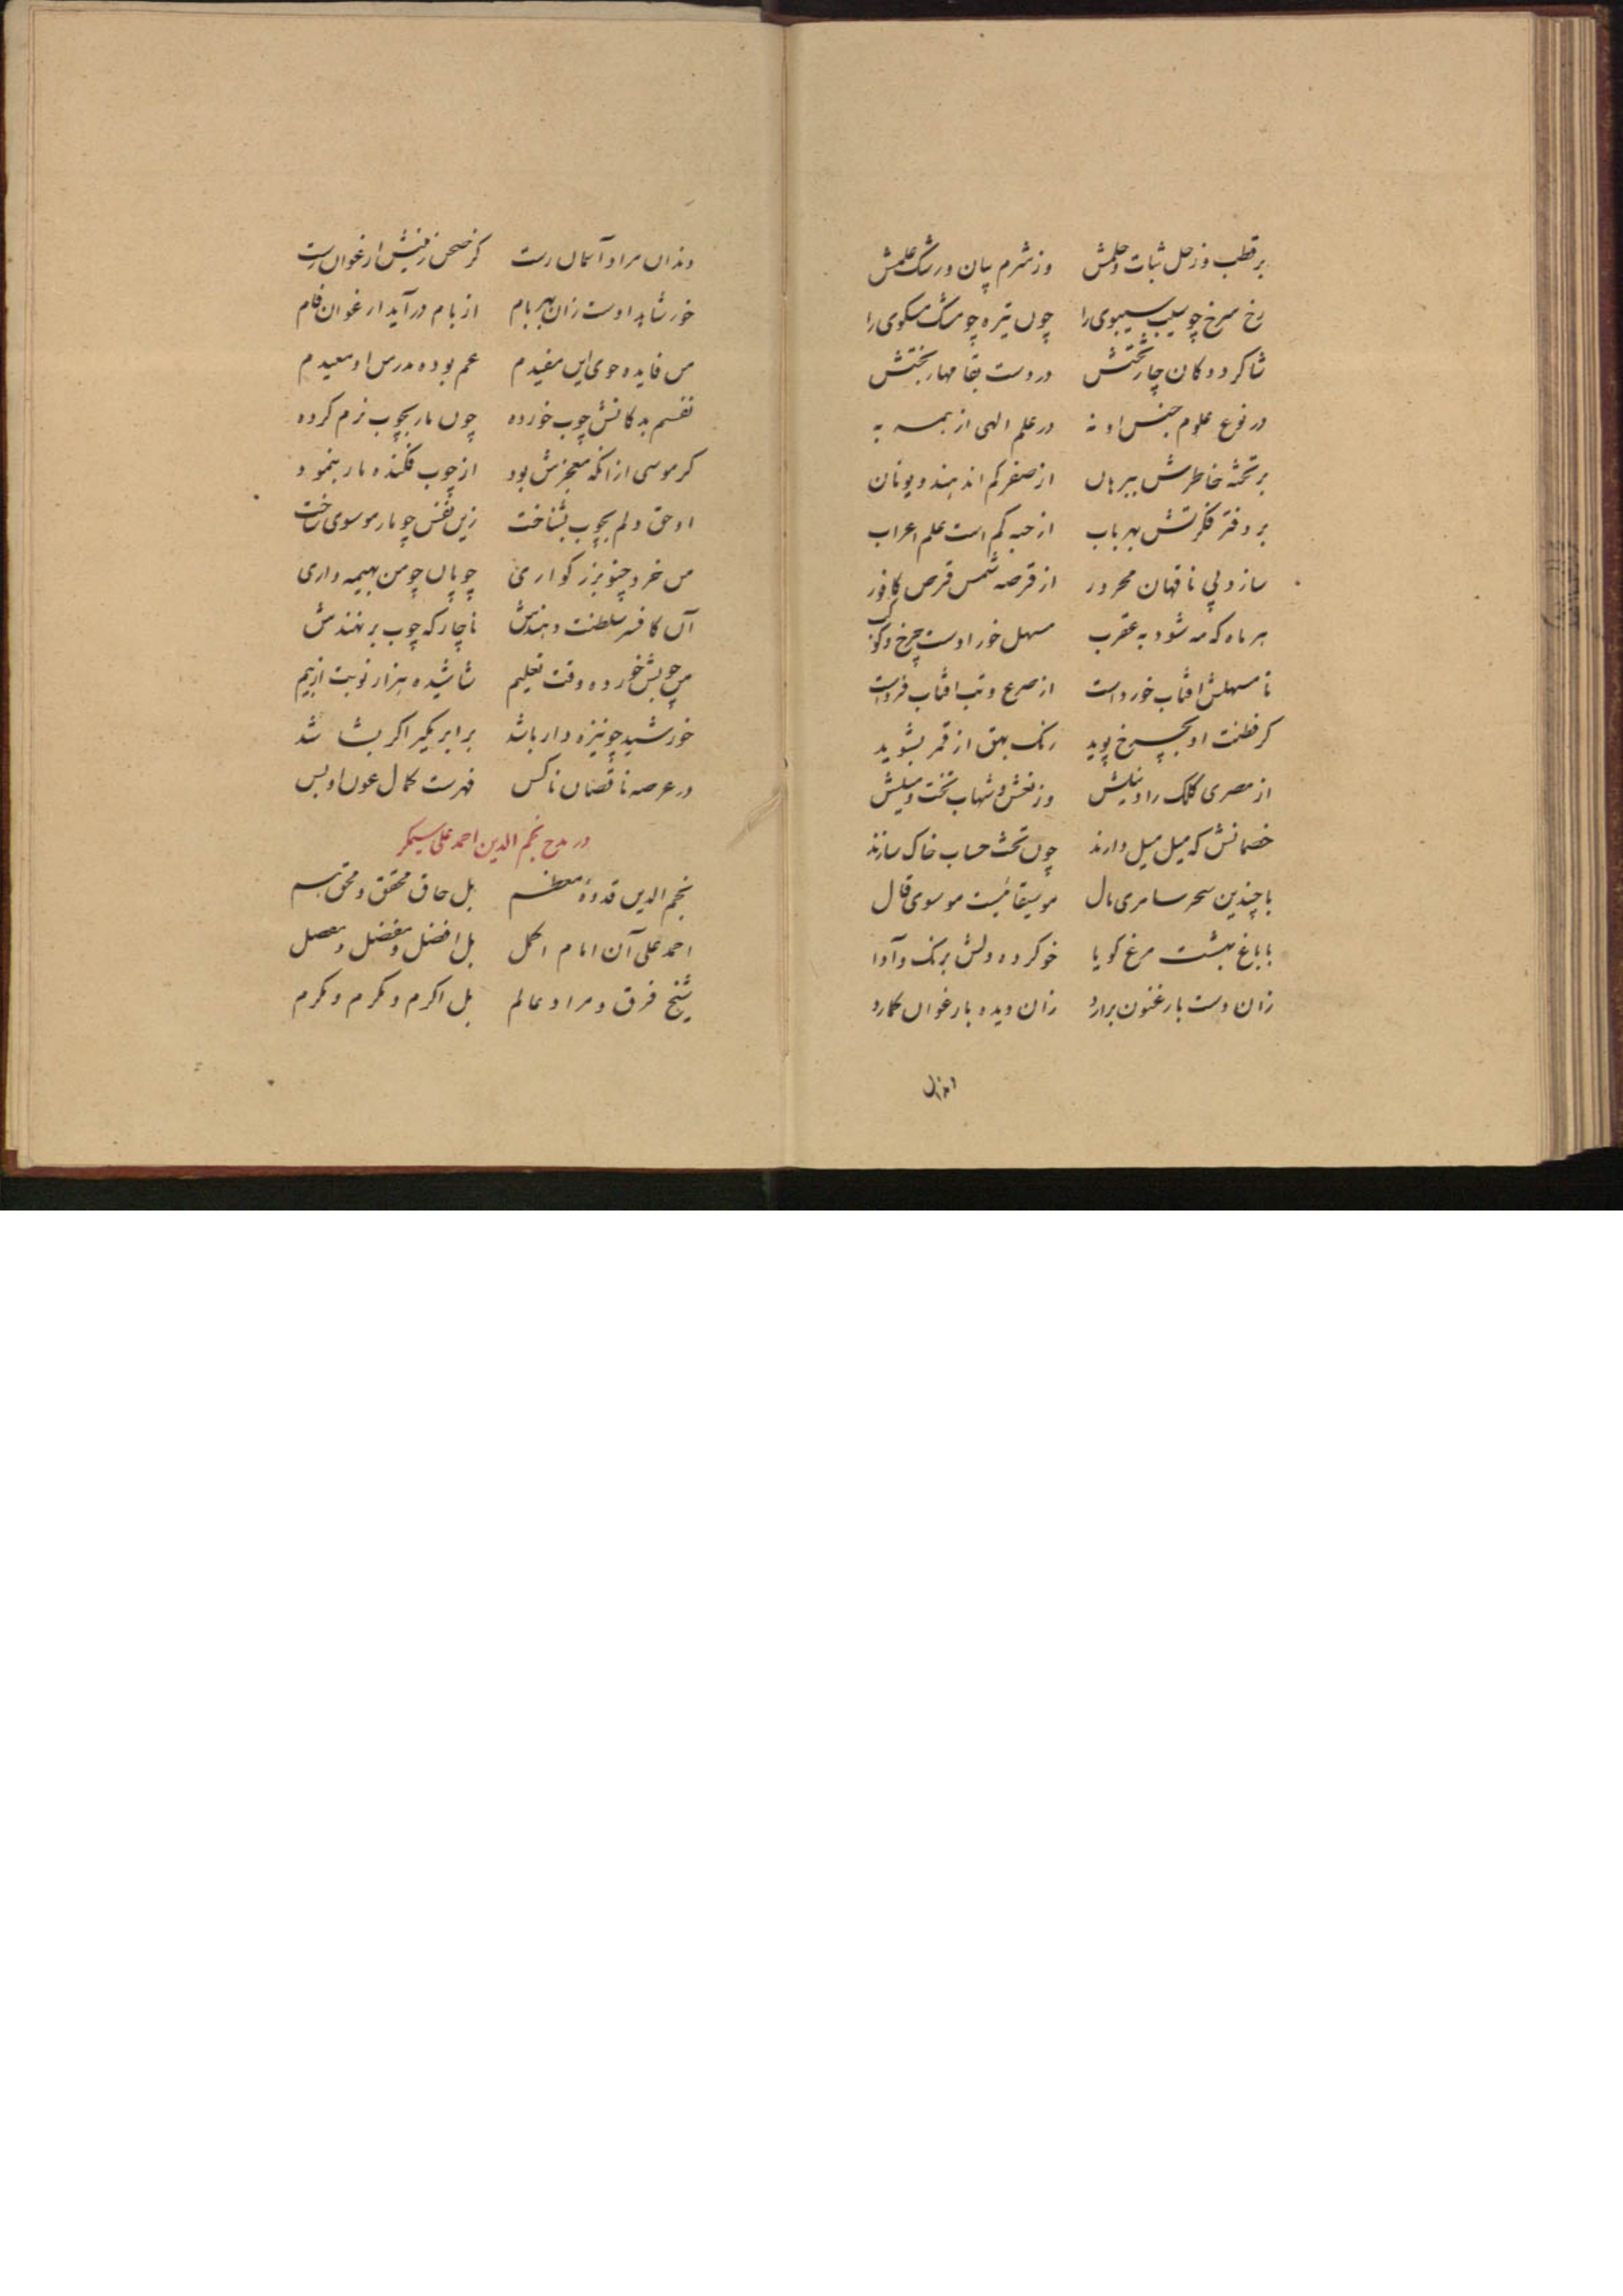 بر قطب و زحل ثبات و حلمش وز شرم بیان و رشک علمش
رخ سرخ چو سیب سیبوی را چون تیره چو مشک مسکوی را
شاکرد دوکان چار تختش در دست بقا مهار بختش
در نوع علوم جنس او نه در علم الهی از همه به
بر تخته خاطرش ببرهان از صفر کم اند هند و یونان
بر دفتر فکرتش بهر باب از حبه کم است علم اعراب
سازد پی ناقهان محرور از قرصه شمس قرص کافور
هر ماه که مه شود به عقرب مسهل خور اوست چرخ و کوکب
تا مسهلش افتاب خورداست از صرع و تب افتاب فرداست
کر فطنت او بچرخ پوید رنک بهق از قمر بشوید
از مصری کلک را و نیلش وز نعش و شهاب تخت و میلش
خصمانش که میل میل دارند چون تخت حساب خاک سازند
با چندین سحر سامری مال موسیقائیست موسوی قال
با باغ بهشت مرغ کویا خو کرده دلش برنک و آوا
زان دست بارغنون برارد زان دیده بارغوان کمارد
وندان مراد آسمان رست کز صحن زمینش ارغوان رست
خور شاهد اوست زان بهر بام از بام درآید ارغوان فام
من فایده جوی این مفیدم عم بوده مدرس او معیدم
نفسم بدکانش چوب خورده چون مار بچوب نرم کرده
کر موسی ازانکه معجزش بود از چوب فکنده مار بنمود
او حق دلم بچوب بشناخت زین نفس چو مار موسوی ساخت
من خرد چنو بزرکواری چوپان چو من بهیمه داری
آن کافسر سلطنت دهندش ناچار که چوب بر نهندش
من چوبش خورده وقت تعلیم شاشیده هزار نوبت از بیم
خورشید چو نیزه دار باشد برابر بگیر اکر بشاشد
در عرصه ناقصان ناکس فهرست کمال عون او بس
در مدح نجم الدین احمد علی سیمکر
نجم الدین قدوهٔ معظم بل حاق محقق و محق هم
احمد علی آن امام اکمل بل افضل و مفضل و مفصل
شیخ فرق و مراد عالم بل اکرم و مکرم و مکرم